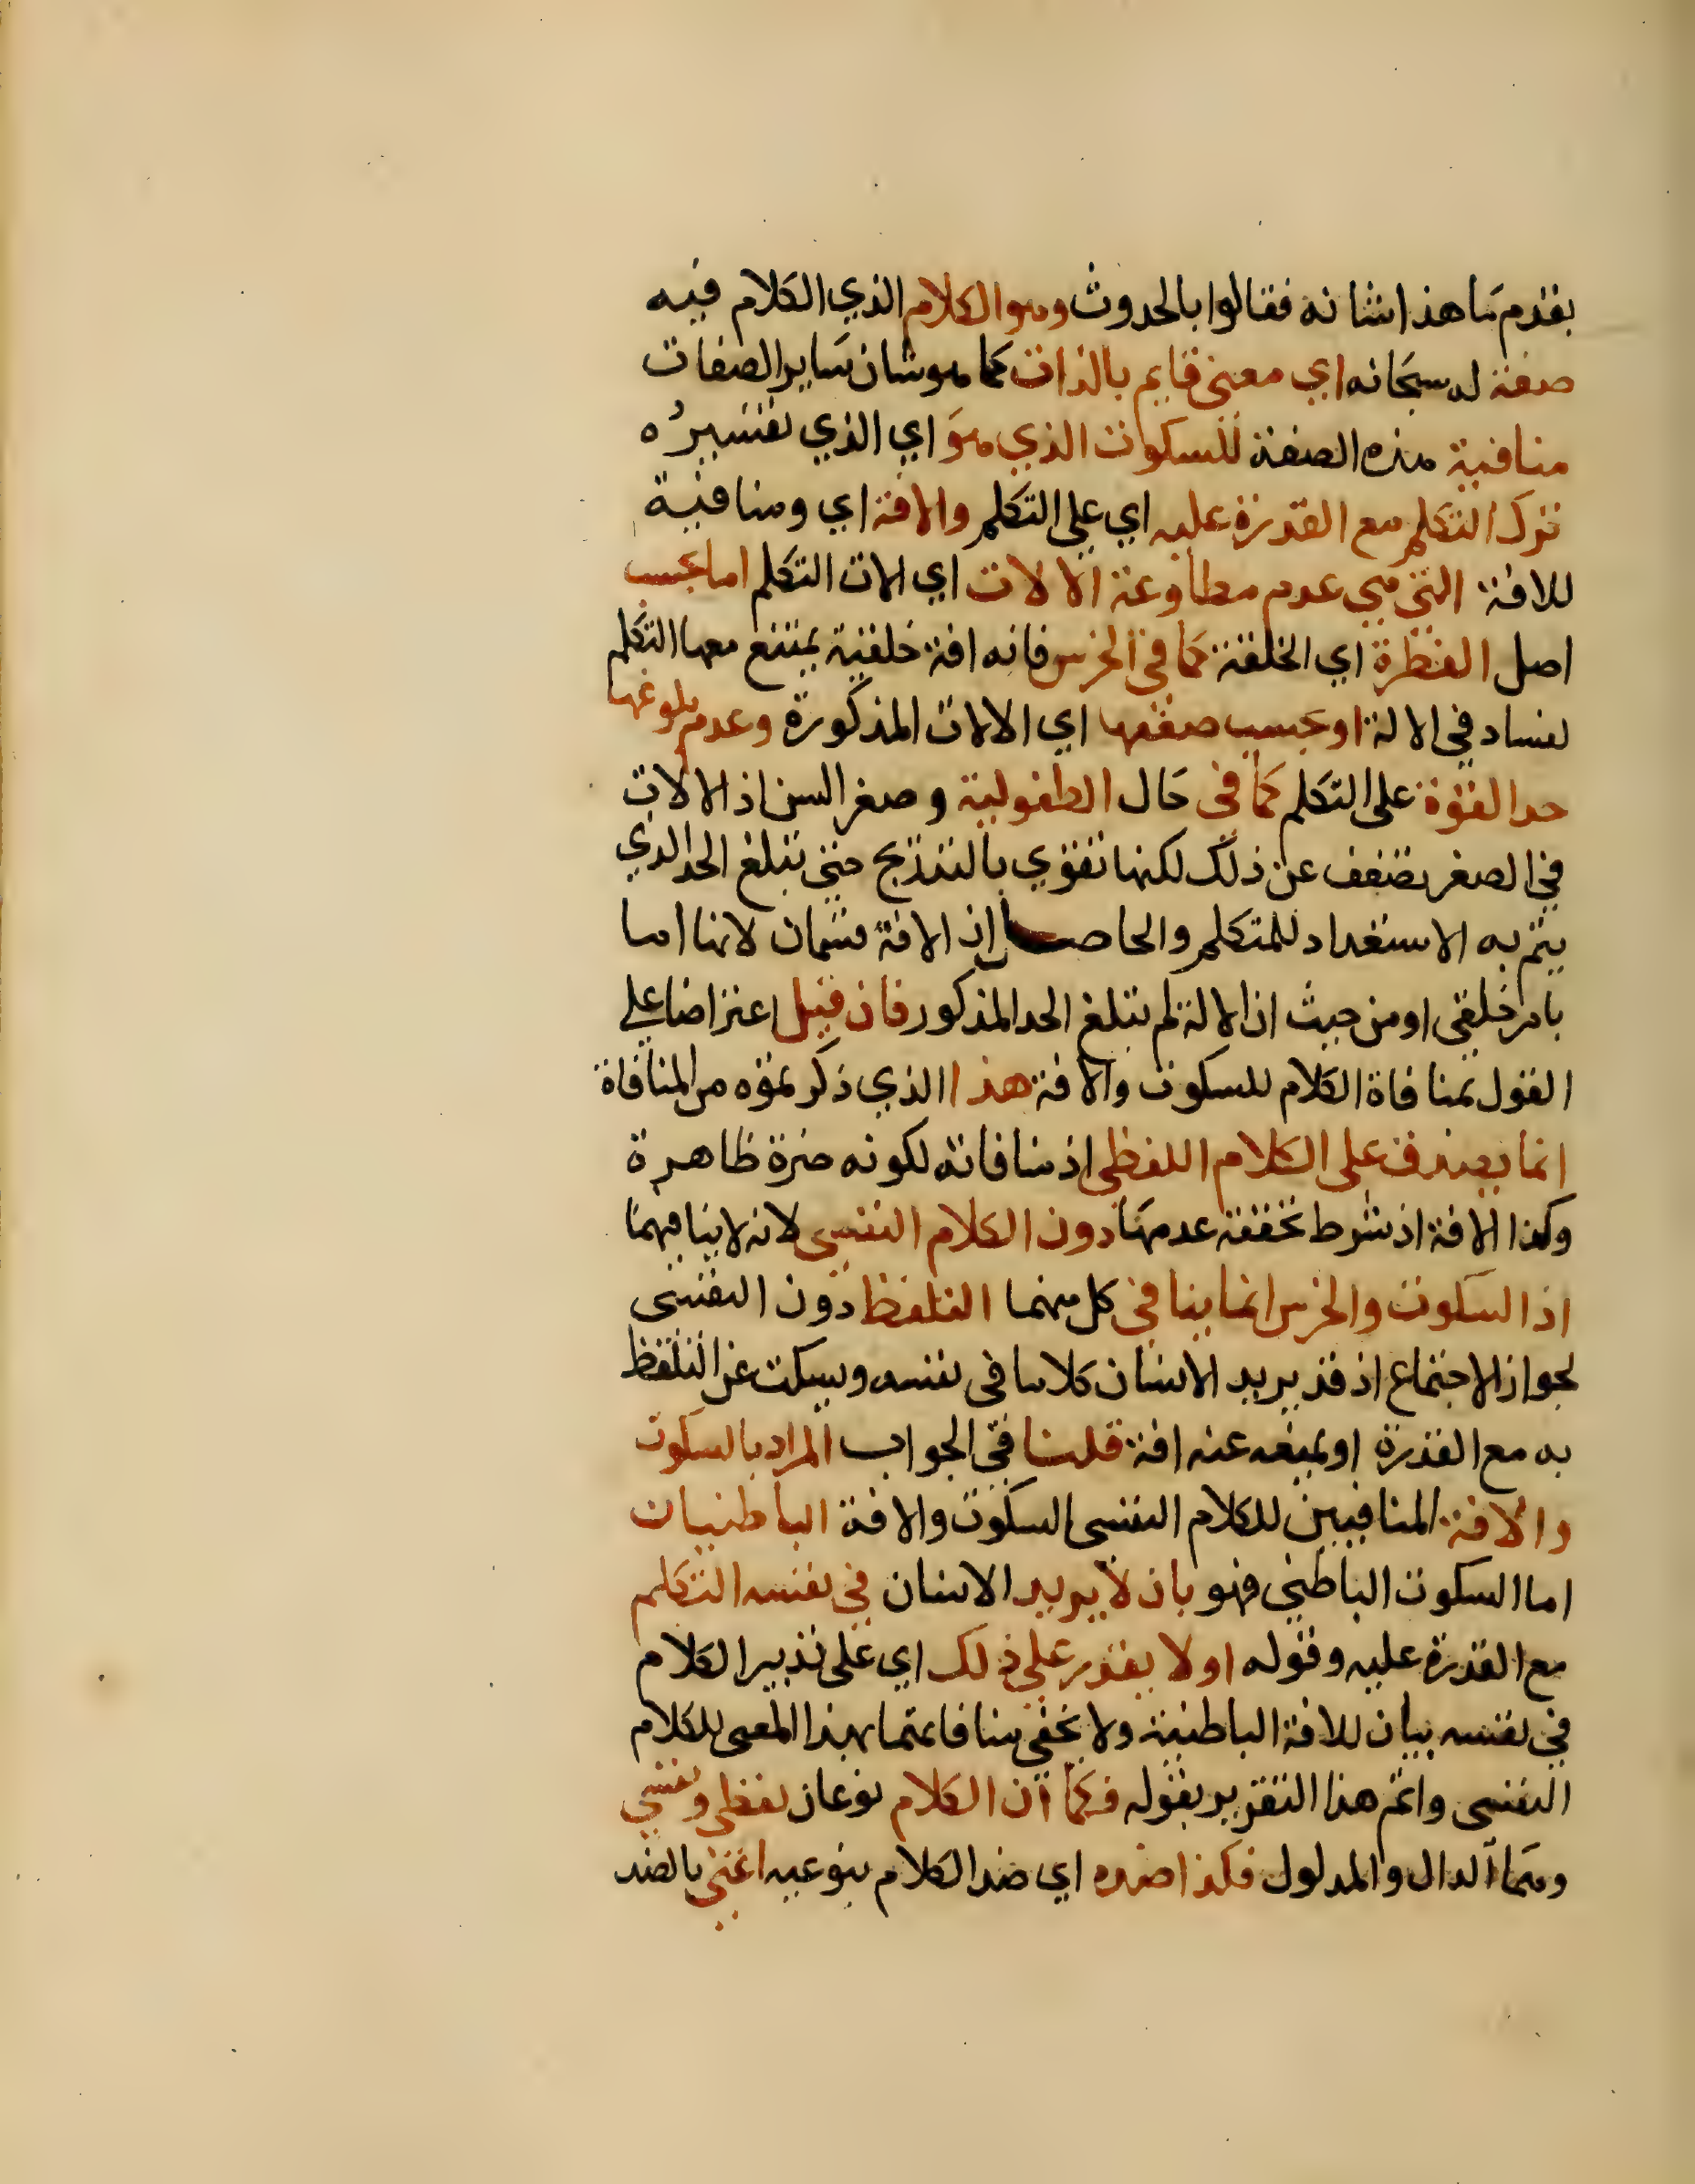 بقدم ما هذا شانه فقالوا بالحدوث وهو الكلام الذي الكلام فيه
صفة له سبحانه اي معنى قايم بالذات كما هو شان ساير الصفات
منافية هذه الصفة للسكوت الذي هو اي الذي تفسيره
ترك التكلم مع القدرة عليه اي على التكلم والافة اي ومنافية
للافة التي هي عدم مطاوعة الالات اي الات التكلم اما بحسب
اصل الفطرة اي الخلقة كما في الخرس فانه افة خلقية يمتنع معها التكلم
لفساد في الالة او بحسب ضعفها اي الالات المذكورة وعدم بلوغها
حد القوة على التكلم كما في حال الطفولية وصغر السن اذ الالات
في الصغر تضعف عن ذلك لكنها تقوي بالتدريج حتى تبلغ الحد الذي
يتم به الاستعداد للمتكلم والحاصل ان الافة قسمان لانها اما
بامر خلقي او من حيث ان الالة لم تبلغ الحد المذكور فان قيل اعتراضا على
القول بمنافاة الكلام للسكوت والافة هذا الذي ذكرتموه من المنافاة
انما يصدق على الكلام اللفظي اذ منافاته لكونه ضرة ظاهرة
وكذا الافة اذ شرط تحققه عدمها دون الكلام النفسي لانه لا ينافيهما
اذ السكوت والخرس انما ينافي كل منهما التلفظ دون النفسى
لجواز الاجتماع اذ قد يريد الانسان كلاما في نفسه ويسكت عن التلفظ
به مع القدرة او يمنعه عنه افة قلنا في الجواب المراد بالسكوت
والافة المنافيين للكلام النفسى السكوت والافة الباطنيان
اما السكوت الباطني فهو بان لا يريد الانسان في نفسه التكلم
مع القدرة عليه وقوله او لا يقدر على ذلك اي على تدبير الكلام
في نفسه بيان للافة الباطنية ولا يخفى منافاتهما بهذا المعنى للكلام
النفسى واتم هذا التقرير بقوله فكما ان الكلام نوعان لفظي ونفسي
وهما الدال والمدلول فكذا ضده اي ضد الكلام بنوعيه اعني بالضد